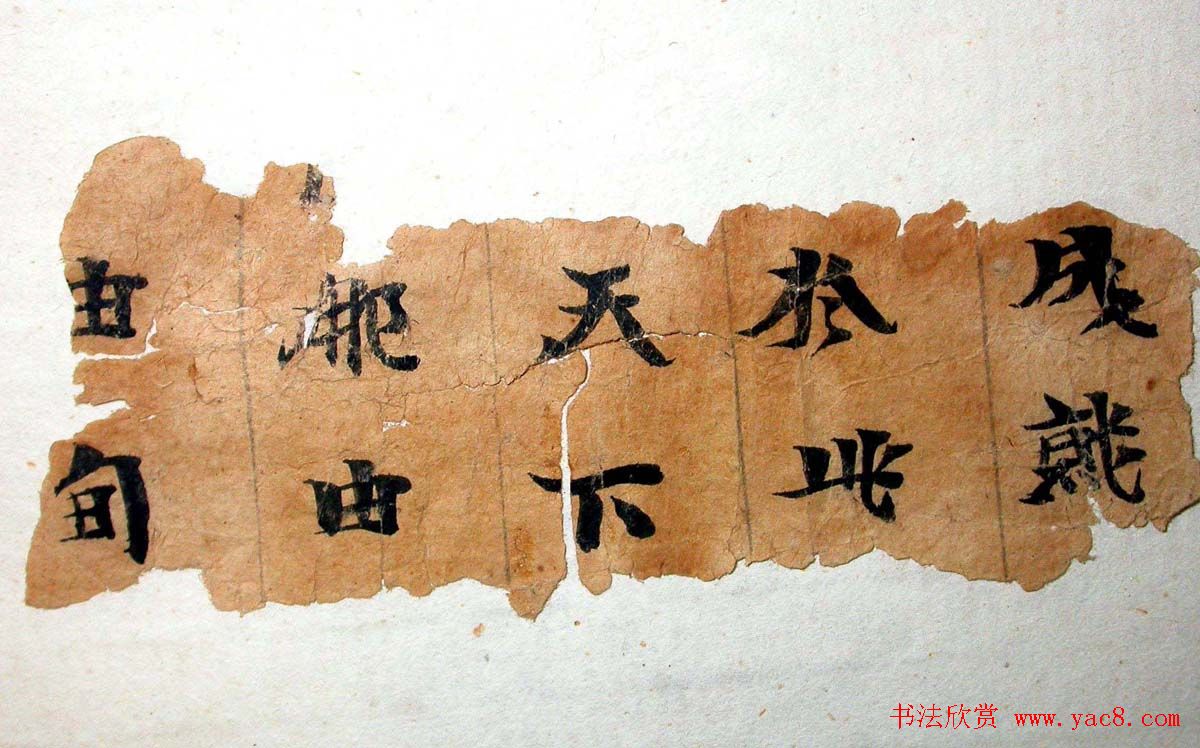 成就
於此
天下
那由
由旬
书法欣赏 www.yac8.com